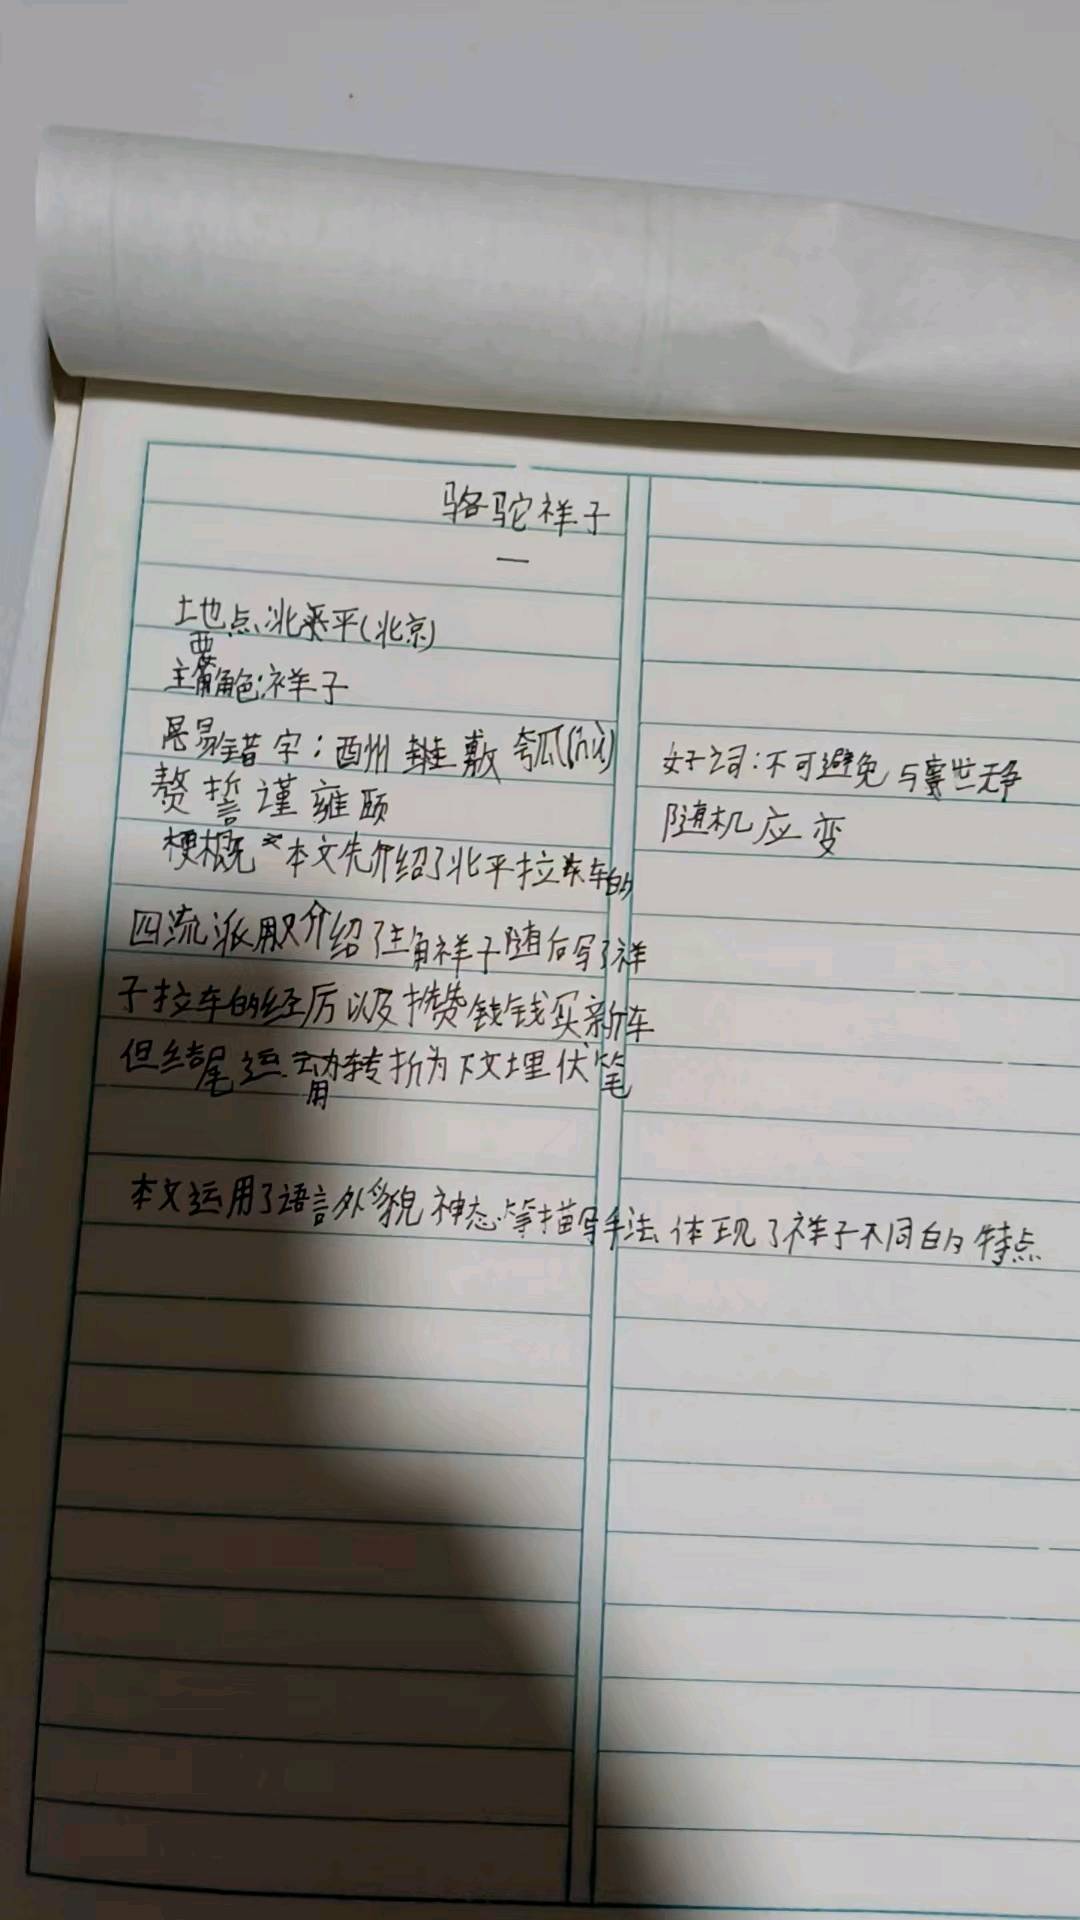 骆驼祥子
一
地点:北平(北京)
主要角色:祥子
易错字:酬 敷 瓠(hù)
赘 誓 谨 雍 颐
好词:不可避免 与世无争
随机应变
梗概 本文先介绍了北平拉车的
四流派 介绍了主角祥子随后写了祥
子拉车的经历以及攒钱买新车
但结尾运用转折为下文埋伏笔
本文运用了语言外貌神态等描写手法,体现了祥子不同的特点